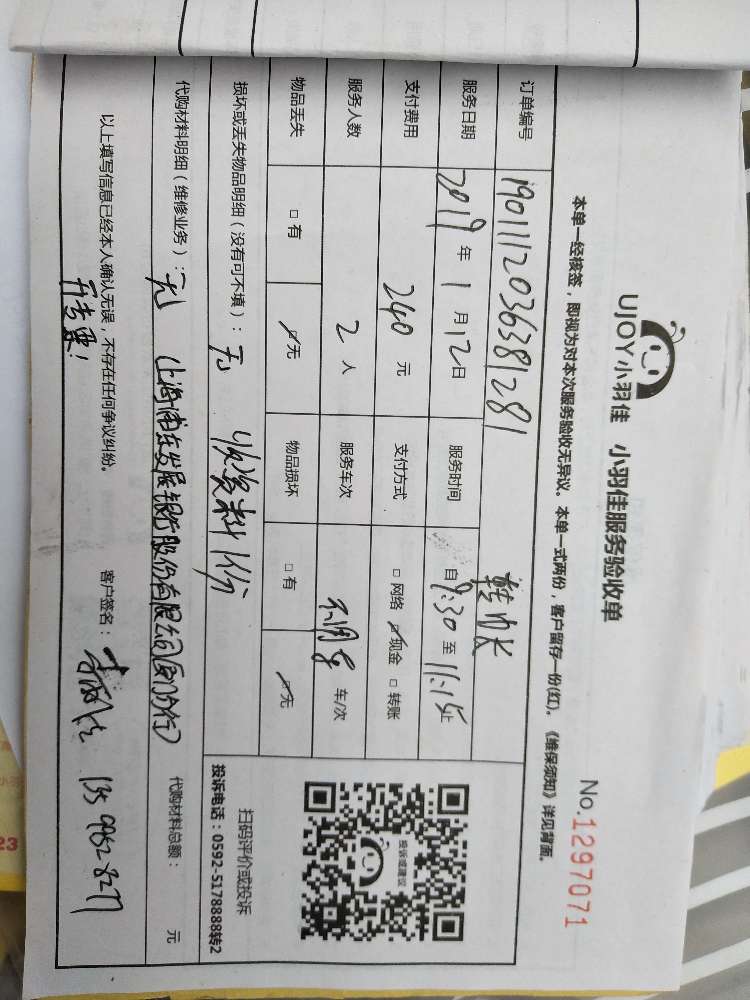 UJOY小羽佳 小羽佳服务验收单
No.1297071
本单一经核签，即视为对本次服务验收无异议。本单一式两份，客户留存一份(红)。《维保须知》详见背面。
订单编号 1901112036381281
服务日期 2019年1月12日 服务时间 自9:30至11:15止
支付费用 240元 支付方式 □网络 ☑现金 □转账
服务人数 2人 服务车次 不用车 车/次
物品丢失 □有 ☑无 物品损坏 □有 ☑无
扫码评价或投诉
投诉电话：0592-5178888转2
投诉或建议
损坏或丢失物品明细（没有可不填）：无 收资料1份
代购材料明细（维修业务）：无 (上海浦东发展银行股份有限公司厦门分行) 代购材料总额： 元
开专票！
以上填写信息已经本人确认无误，不存在任何争议纠纷。 客户签名：
23